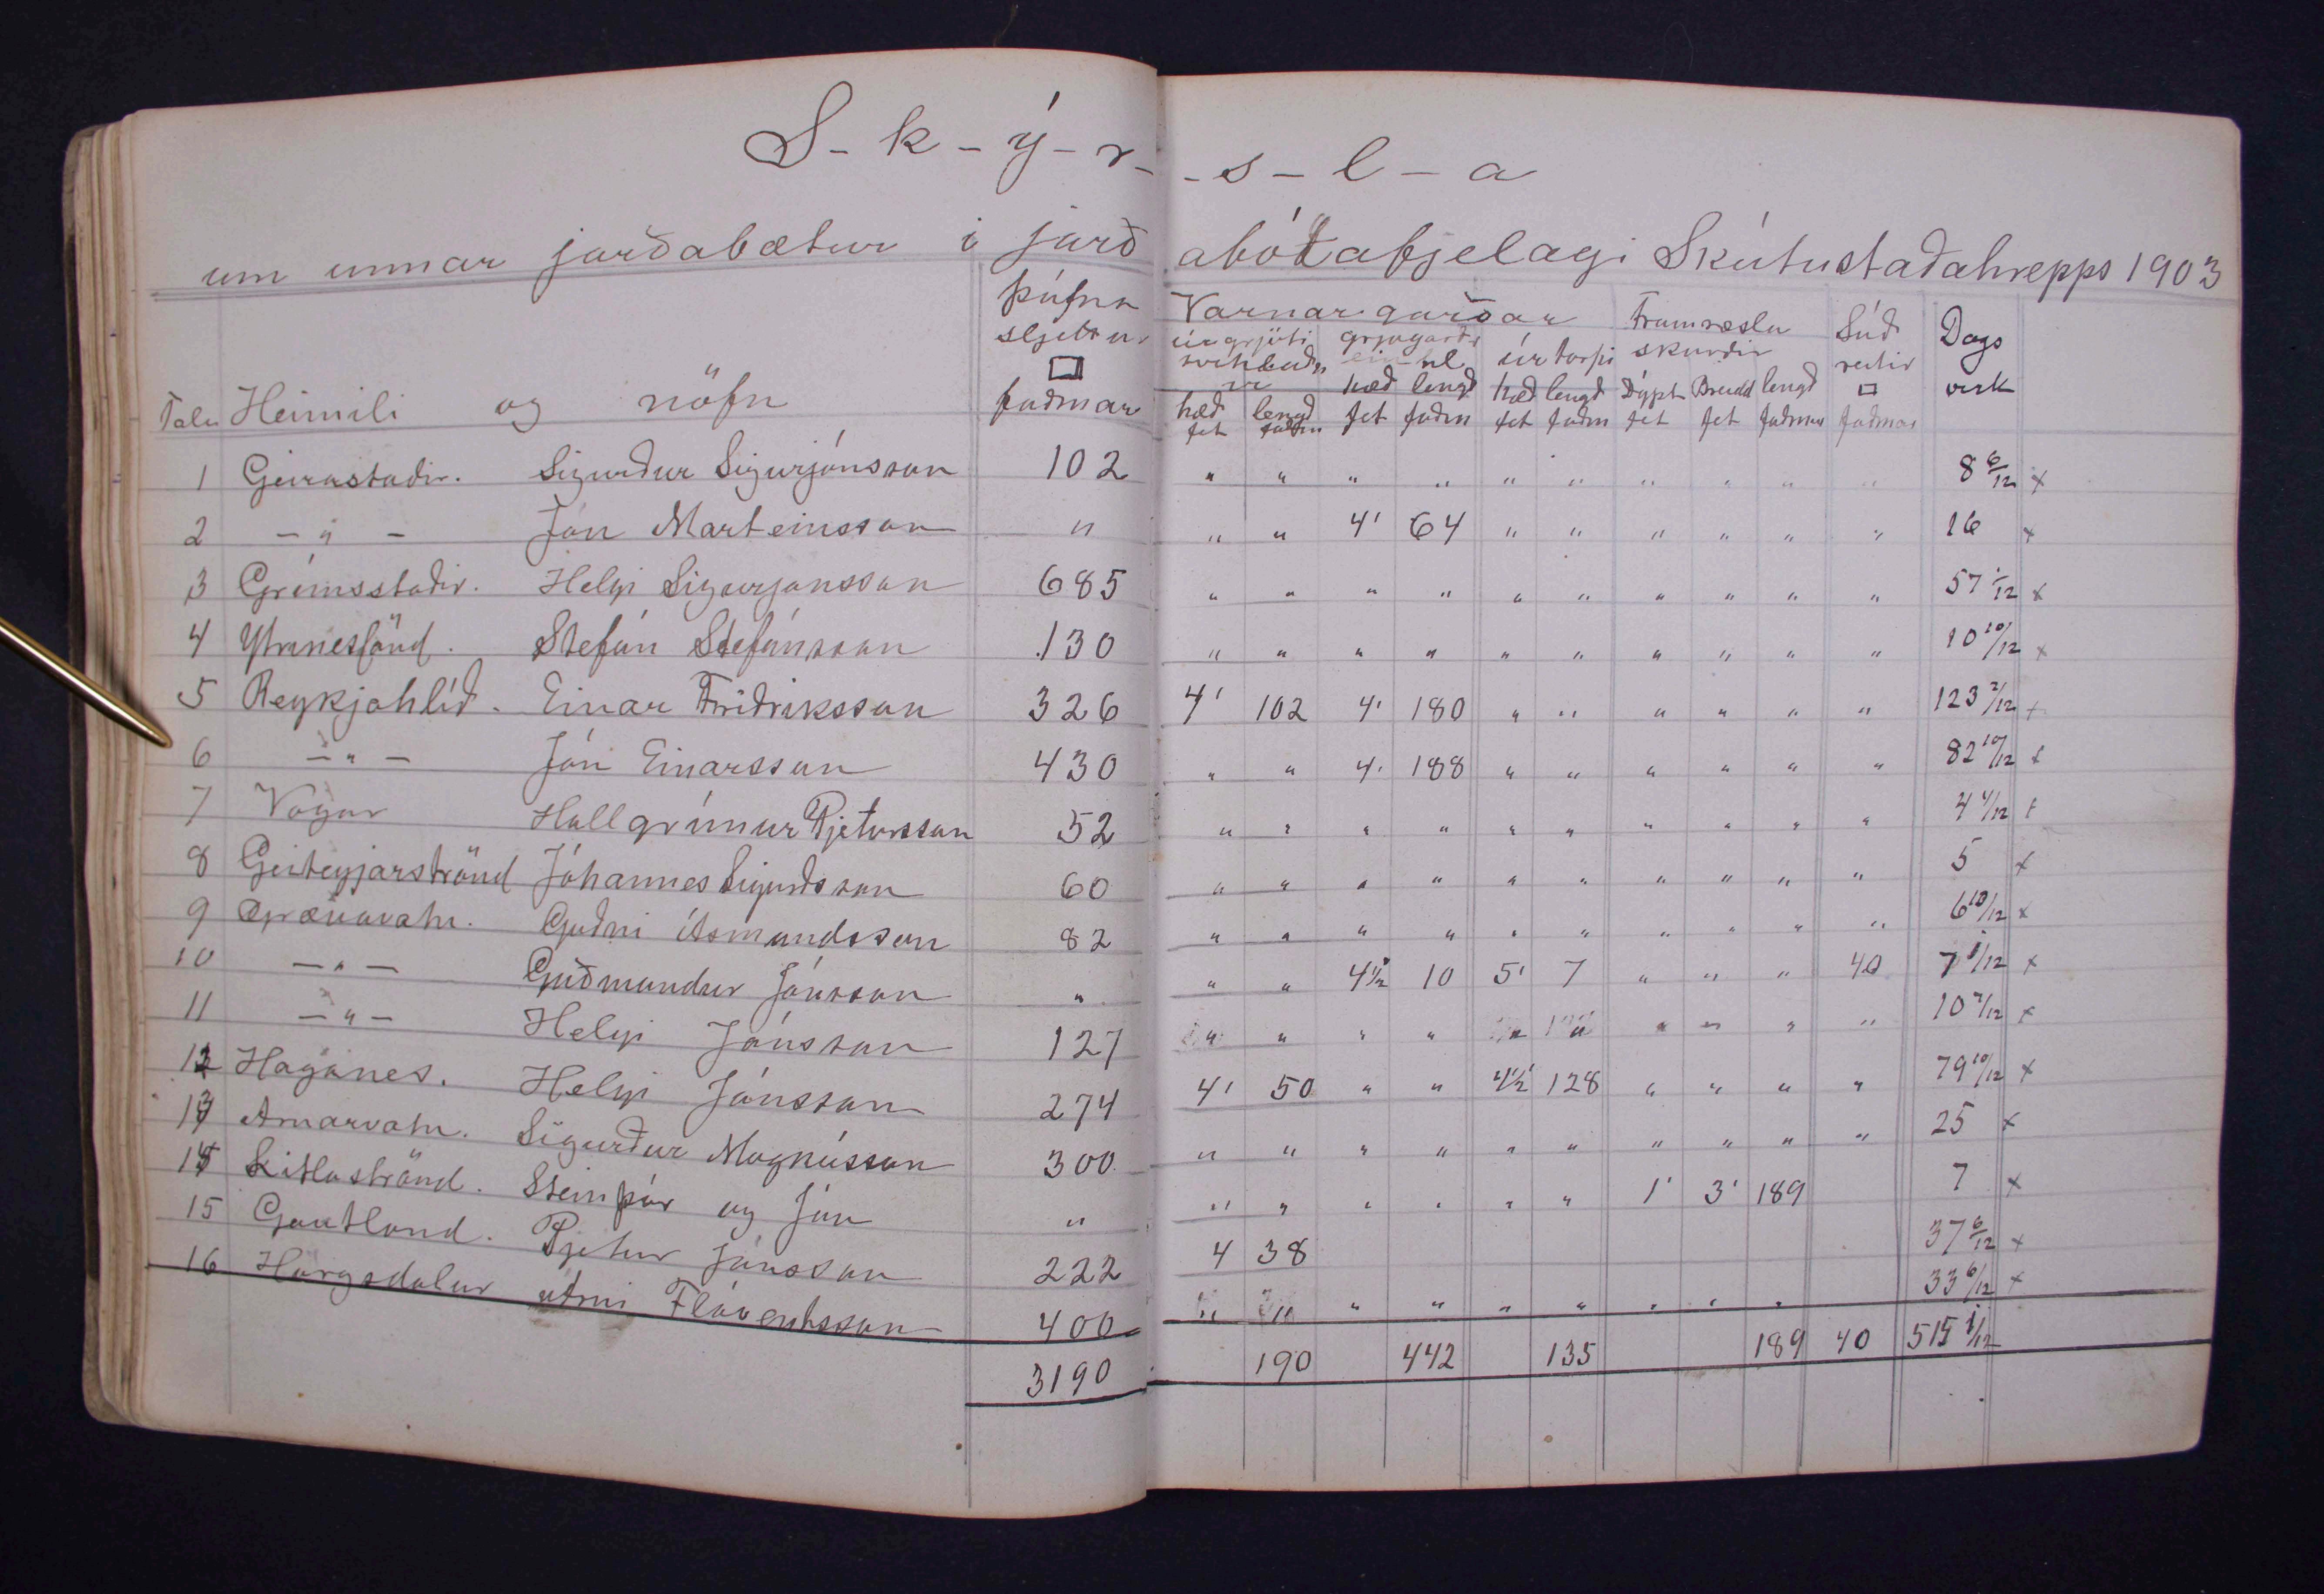 S-k-ý-r- -s-l-a
um unnar jarðabætur í jarð abótafjelagi Skútustaðahrepps 1903
Þúfna Varnargarðar Framræslu Sáð Dags
sljettur úr grjóti grjógarðr úr torfi skurðir reitir verk
□ hæð lengd hæð lengd Dýpt Breidd lengd □
Tala Heimili og nöfn faðmar hæð fet lengd faðm fet faðm fet faðm fet fet faðmar faðmar
1 Geirastaðir. Sigurður Sigurjónsson 102 " " " " " " " " " " 8 6/12 x
2 - " - Jón Marteinsson " " " 4' 64 " " " " " " 16 x
3 Grímsstaðir. Helgi Sigurjónsson 685 " " " " " " " " " " 57 1/12 x
4 Ytrineslönd. Stefán Stefánsson 130 " " " " " " " " " " 10 10/12 x
5 Reykjahlíð. Einar Friðriksson 326 4' 102 4' 180 " " " " " " 123 2/12 x
6 - " - Jón Einarsson 430 " " 4' 188 " " " " " " 82 10/12 x
7 Vogar Hallgrímur Pjetursson 52 " " " " " " " " " " 4 4/12 x
8 Geiteyjarströnd Jóhannes Sigurðsson 60 " " " " " " " " " " 5 x
9 Grænavatn. Guðni Ásmundsson 82 " " " " " " " " " " 6 10/12 x
10 - " - Guðmundur Jónsson " " " 4 1/2 10 5' 7 " " " 40 7 1/12 x
11 - " - Helgi Jónsson 127 " " " " " " " " " " 10 7/12 x
12 Haganes. Helgi Jónsson 274 4' 50 " " 4 1/2 128 " " " " 79 10/12 x
13 Arnarvatn. Sigurður Magnússon 300 " " " " " " " " " " 25 x
14 Litlaströnd. Steinþór og Jón " " " " " " " 1' 3' 189 7 x
15 Gautlönd. Pjetur Jónsson 222 4 38 37 6/12 x
16 Hörgsdalur Árni Flóventsson 400 " " " " " " " " " 33 6/12 x
3190 190 442 135 189 40 515 1/12